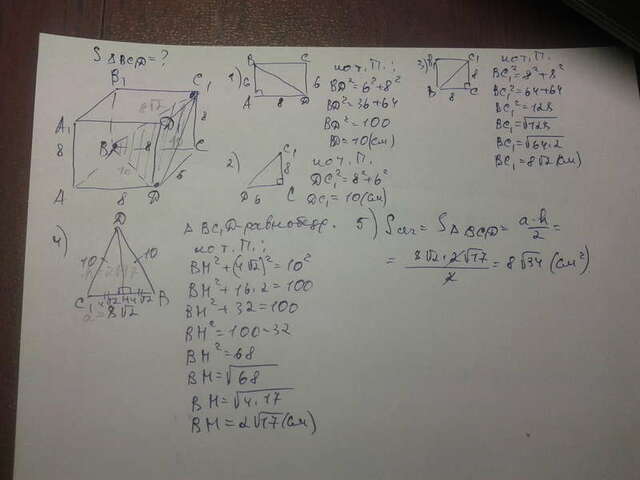 S ΔBC₁D = ?
B₁ C₁
8√2
A₁ D₁
8 8
B 8 C
10 10
6
A 8 D
1)
B C
6 6
A 8 D
по т. П.:
BD² = 6² + 8²
BD² = 36 + 64
BD² = 100
BD = 10 (см)
2)
C₁
8
D 6 C
по т. П.
DC₁² = 8² + 6²
DC₁ = 10 (см)
3)
B₁ C₁
8
B 8 C
по т. П.
BC₁² = 8² + 8²
BC₁² = 64 + 64
BC₁² = 128
BC₁ = √128
BC₁ = √64·2
BC₁ = 8√2 (см)
4)
D
10 10
2√17
C₁ 4√2 H 4√2 B
a = 8√2
Δ BC₁D - равнобедр.
по т. П.:
BH² + (4√2)² = 10²
BH² + 16·2 = 100
BH² + 32 = 100
BH² = 100 - 32
BH² = 68
BH = √68
BH = √4·17
BH = 2√17 (см)
5) Sсеч = SΔBC₁D = a·h/2 =
= 8√2·2√17/2 = 8√34 (см²)